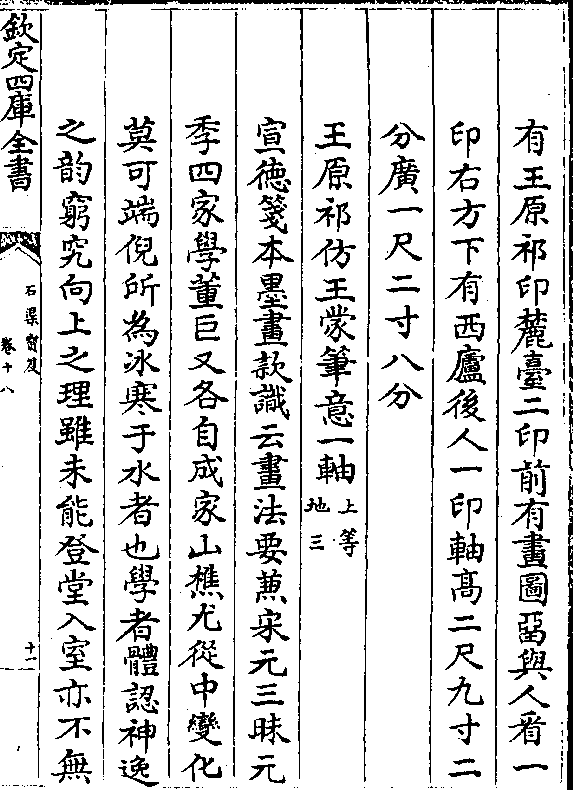 有王原祁印麓臺二印前有畫圖畱與人看一
印右方下有西廬後人一印軸髙二尺九寸二
分廣一尺二寸八分
王原祁仿王蒙筆意一軸上等
地三
宣徳箋本墨畫款識云畫法要兼宋元三昧元
季四家學董巨又各自成家山樵尤從中變化
莫可端倪所為氷寒于水者也學者體認神逸
之韵窮究向上之理雖未能登堂入室亦不無
欽定四庫全書
石渠寳笈
卷十八
十一